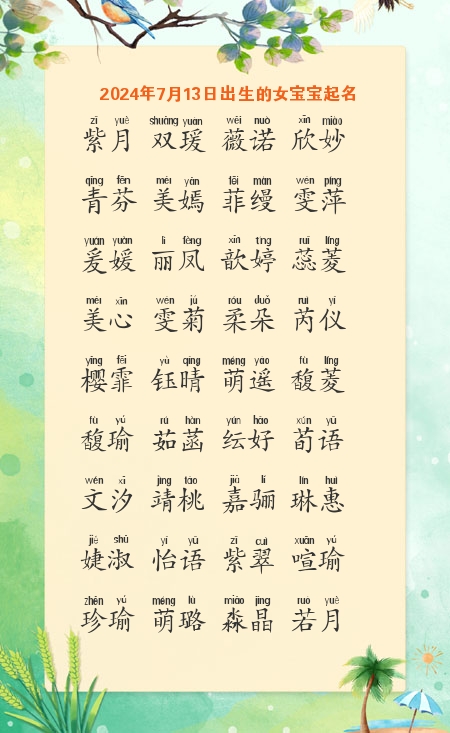 2024年7月13日出生的女宝宝起名
zǐ yuè shuāng yuàn wēi nuò xīn miào
紫月 双瑗 薇诺 欣妙
qīng fēn měi yān fēi màn wén píng
青芬 美嫣 菲缦 雯萍
yuán yuàn lì fèng xīn tíng ruǐ líng
爰媛 丽凤 歆婷 蕊菱
měi xīn wén jú róu duǒ ruì yí
美心 雯菊 柔朵 芮仪
yīng fēi yù qíng méng yáo fù líng
樱霏 钰晴 萌遥 馥菱
fù yú rú hàn yún hǎo xún yǔ
馥瑜 茹菡 纭好 荀语
wén xī jìng táo jiā lí lín huì
文汐 靖桃 嘉骊 琳惠
jié shū yí yǔ zǐ cuì xuān yú
婕淑 怡语 紫翠 喧瑜
zhēn yú méng lù miǎo jīng ruò yuè
珍瑜 萌璐 淼晶 若月